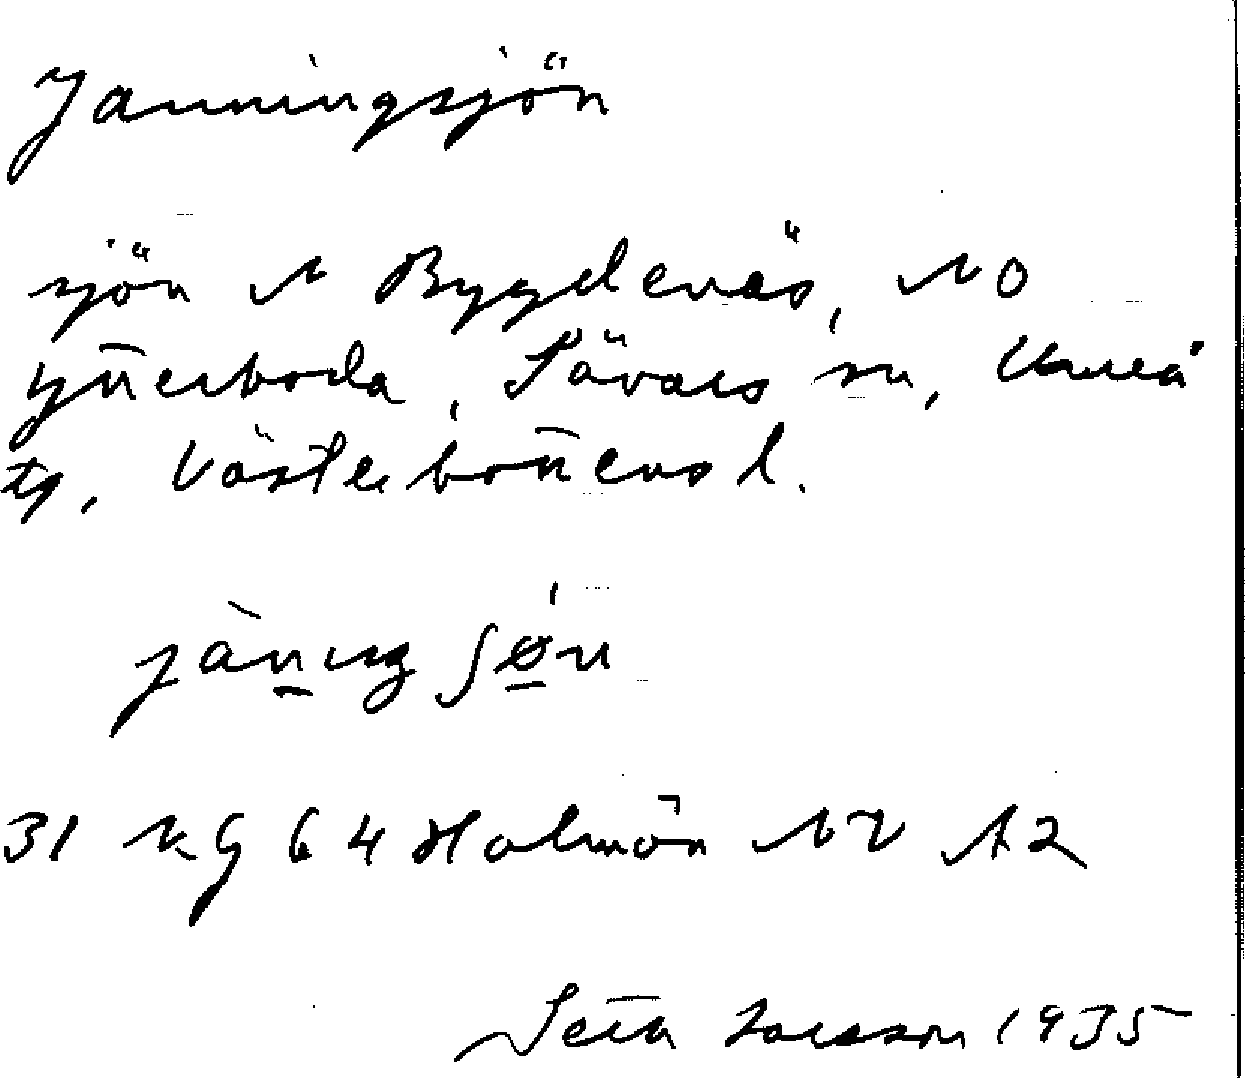 Janningsjön
sjön N Bygdenäs, NO
Gun̄erboda, Sävars sn, Umeå
tg, Västerbon̄ens l.
jànıŋ ʃǿ̱n
31 kg 64 Holmön NV A2
Larsson 1935